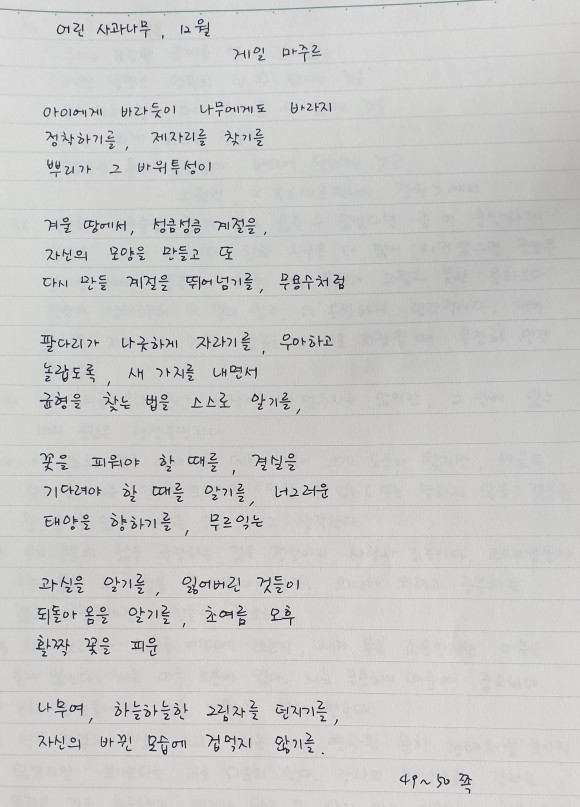 어린 사과나무, 12월
게일 마주르
아이에게 바라듯이 나무에게도 바라지
정착하기를, 제자리를 찾기를
뿌리가 그 바위투성이
겨울 땅에서, 성큼성큼 계절을,
자신의 모양을 만들고 또
다시 만들 계절을 뛰어넘기를, 무용수처럼
팔다리가 나긋하게 자라기를, 우아하고
놀랍도록, 새 가지를 내면서
균형을 찾는 법을 스스로 알기를,
꽃을 피워야 할 때를, 결실을
기다려야 할 때를 알기를, 너그러운
태양을 향하기를, 무르익는
과실을 알기를, 잃어버린 것들이
되돌아 옴을 알기를, 초여름 오후
활짝 꽃을 피운
나무여, 하늘하늘한 그림자를 던지기를,
자신의 바뀐 모습에 겁먹지 않기를.
49~50 쪽